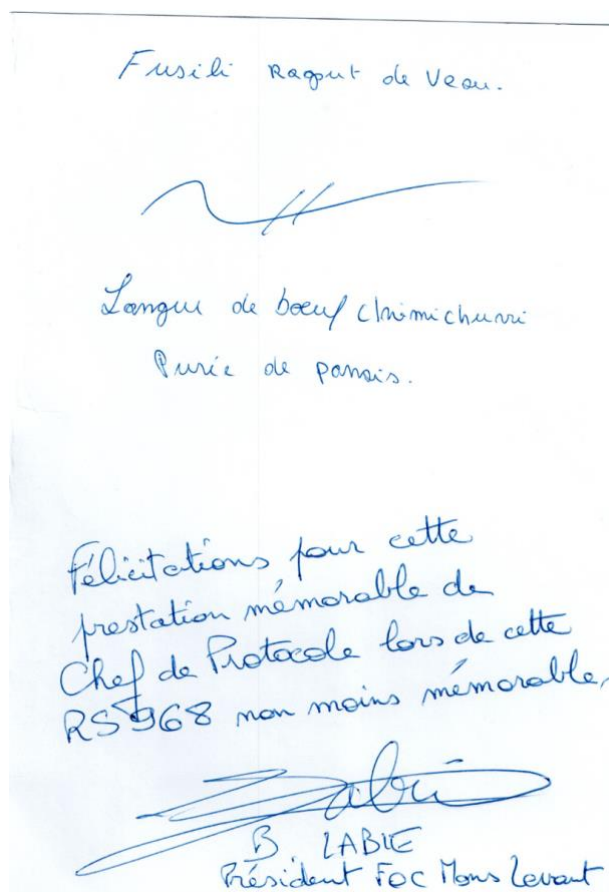 Fusili Ragout de Veau.
Langue de boeuf chimichurri
Purée de panais.
Félicitations pour cette
prestation mémorable de
Chef de Protocole lors de cette
RS 968 non moins mémorable,
Labie
B LABIE
Président FOC Mons Levant